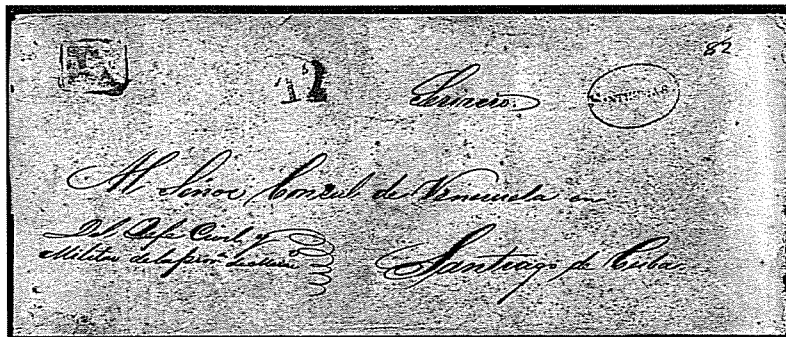 82
12
Servicio.
Al Señor Consul de Venezuela en
Del Jefe Civil y
Militar de la prov.ª
Santiago de Cuba.